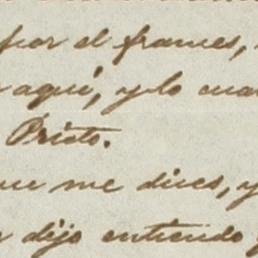 por el frances,
aqui, y lo cua
Prieto.
que me dices, y
dijo entiendo